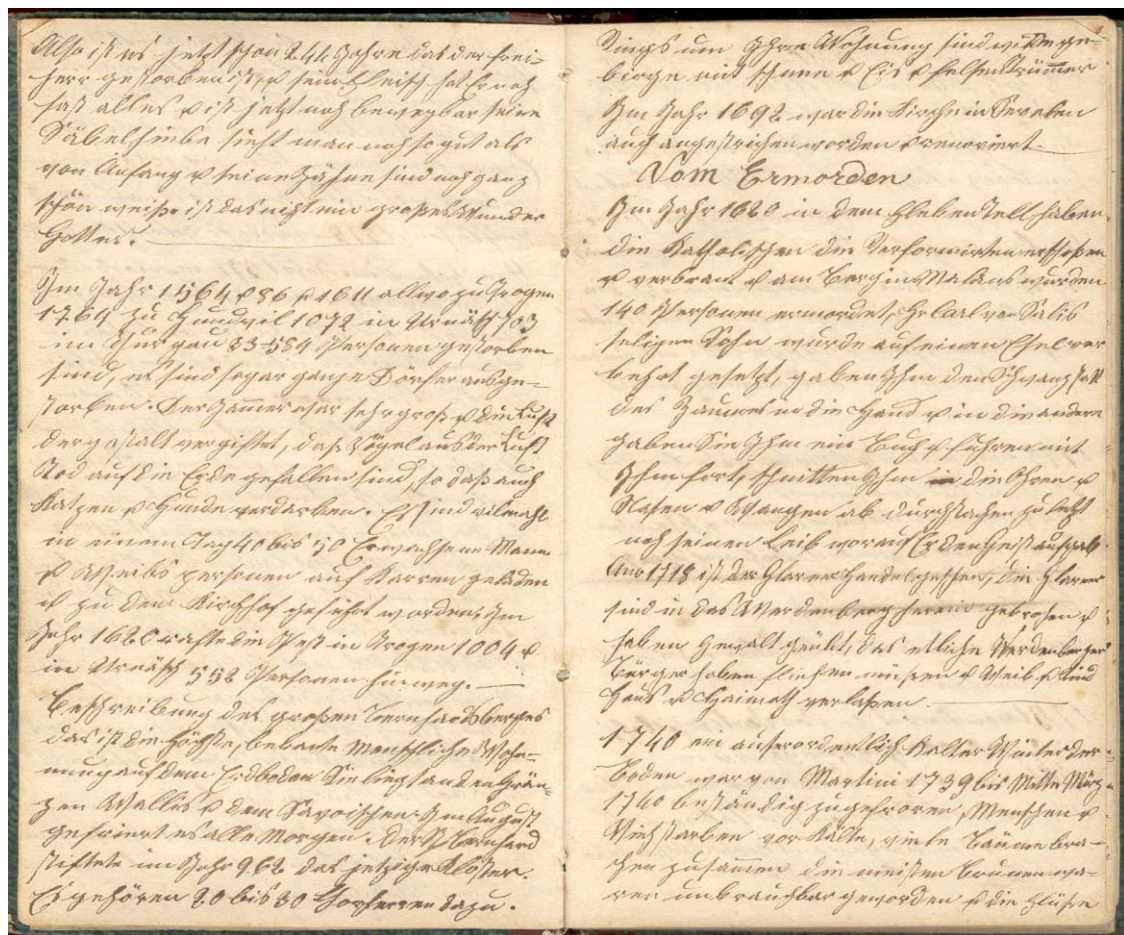 Also ist es jetzt schon 244 Jahre das der Frei-
herr gestorben ist, u sein Fleisch hat Er noch
fast alles u ist jetzt noch bewegbar seine
Säbelhiebe sieht man noch so gut als
von Anfang u seine Zähne sind noch ganz
schön weiß. ist das nicht ein großes Wunder
Gottes.
Im Jahr 1564 u 86 u 1611 allwo zu Trogen
1764 zu Hundwil 1072 in Urnäsch 703
im Thurgau 33584 Personen gestorben
sind, es sind sogar ganze Dörfer ausge-
storben. Der Jammer war sehr groß u die Luft
dergestalt vergiftet, daß Vögel aus der Luft
Tod auf die Erde gefallen sind, so daß auch
Katzen u Hunde verdarben. Es sind vilmahl
in einem Tag 40 bis 50 Erwachsene Mann
u Weibs personen auf Karren geladen
u zu dem Kirchhof geführt worden. Im
Jahr 1620 rafte die Pest in Trogen 1004 u
in Urnäsch 552 Personen hinweg.
Beschreibung des großen Bernhardsberges
das ist die höchste, bebaute Menschliche Woh-
nung auf dem Erdboden Sie liegt an den Grän-
zen Wallis u dem Savoischen. Im August
gefriert es alle Morgen. Der St. Bernhard
stiftete im Jahr 962 das jetzige Kloster.
Es gehören 20 bis 30 Chorherren dazu.
Rings um Ihre Wohnung sind
birge mit Schnee u Eis u Felsentrümmer
Im Jahr 1692 war die Kirche in Sevelen
auch angestrichen worden u renoviert
Vom Ermorden
Im Jahr 1620 in dem haben
die Katholischen die Reformirten erschoßen
u verbrant u am Berg ins Malans wurden
140 Personen ermordet, Hr Carl von Salis
seligen Sohn wurde auf einen Esel ver
kehrt gesetzt, gaben Ihm den Schwanz statt
des Zaumes in die Hand u in die andere
gaben Sie Ihm ein Buch u fuhren mit
Ihm fort, schnitten Ihm die Ohren u
Nasen u Wangen ab durchstachen zu letzt
noch seinen Leib worauf Er den Geist aufgab
Ano 1718 ist der Glarner Handel geschehen, die Glarner
sind in das Werdenberg herein gebrochen u
haben Gewalt geübt, das etliche Werdenberger
Bürger haben fliehen müßen u Weib u Kind
Haus u Haimath verlaßen.
1740 ein auserordentlich Kalter Winter der
Boden war von Martini 1739 bis Mitte März
1740 beständig zugefroren, Menschen u
Vieh starben vor Kälte, viele Bäume bra-
chen zusammen die meisten Brünen wa-
ren unbrauchbar geworden u die Flüße